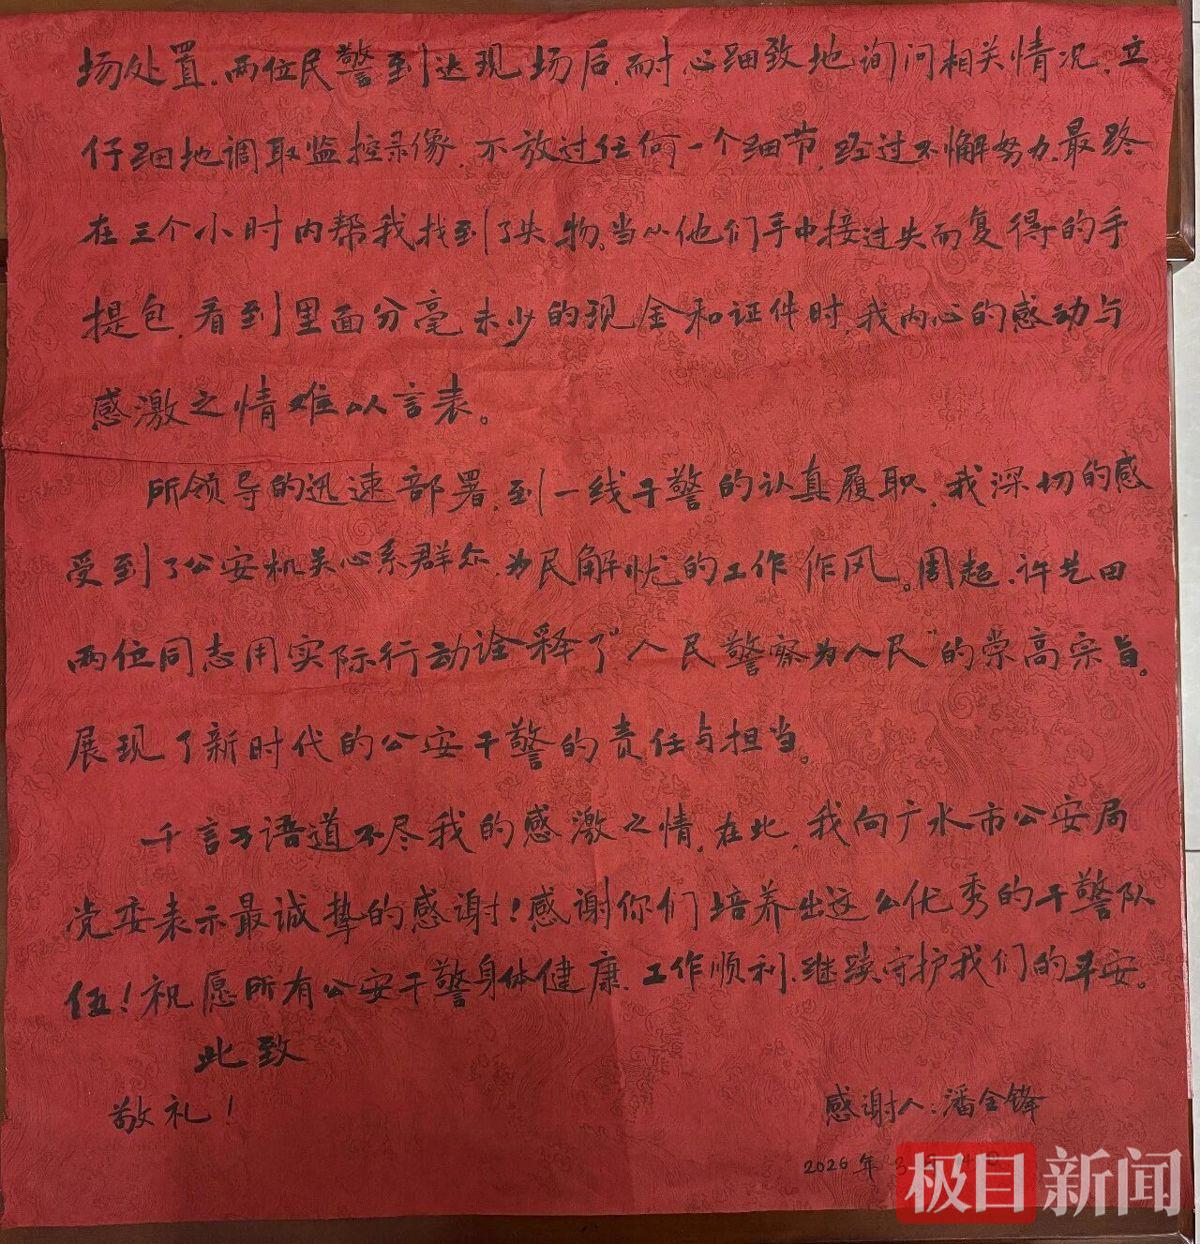 场处置。两位民警到达现场后,耐心细致地询问相关情况,立
仔细地调取监控录像,不放过任何一个细节,经过不懈努力,最终
在三个小时内帮我找到了失物。当从他们手中接过失而复得的手
提包,看到里面分毫未少的现金和证件时,我内心的感动与
感激之情难以言表。
所领导的迅速部署,到一线干警的认真履职,我深切的感
受到了公安机关心系群众,为民解忧的工作作风。周超、许艺田
两位同志用实际行动诠释了“人民警察为人民”的崇高宗旨。
展现了新时代的公安干警的责任与担当。
千言万语道不尽我的感激之情,在此,我向广水市公安局
党委表示最诚挚的感谢!感谢你们培养出这么优秀的干警队
伍!祝愿所有公安干警身体健康、工作顺利、继续守护我们的平安。
此致
敬礼!
感谢人:潘全锋
2026年3月
极目新闻